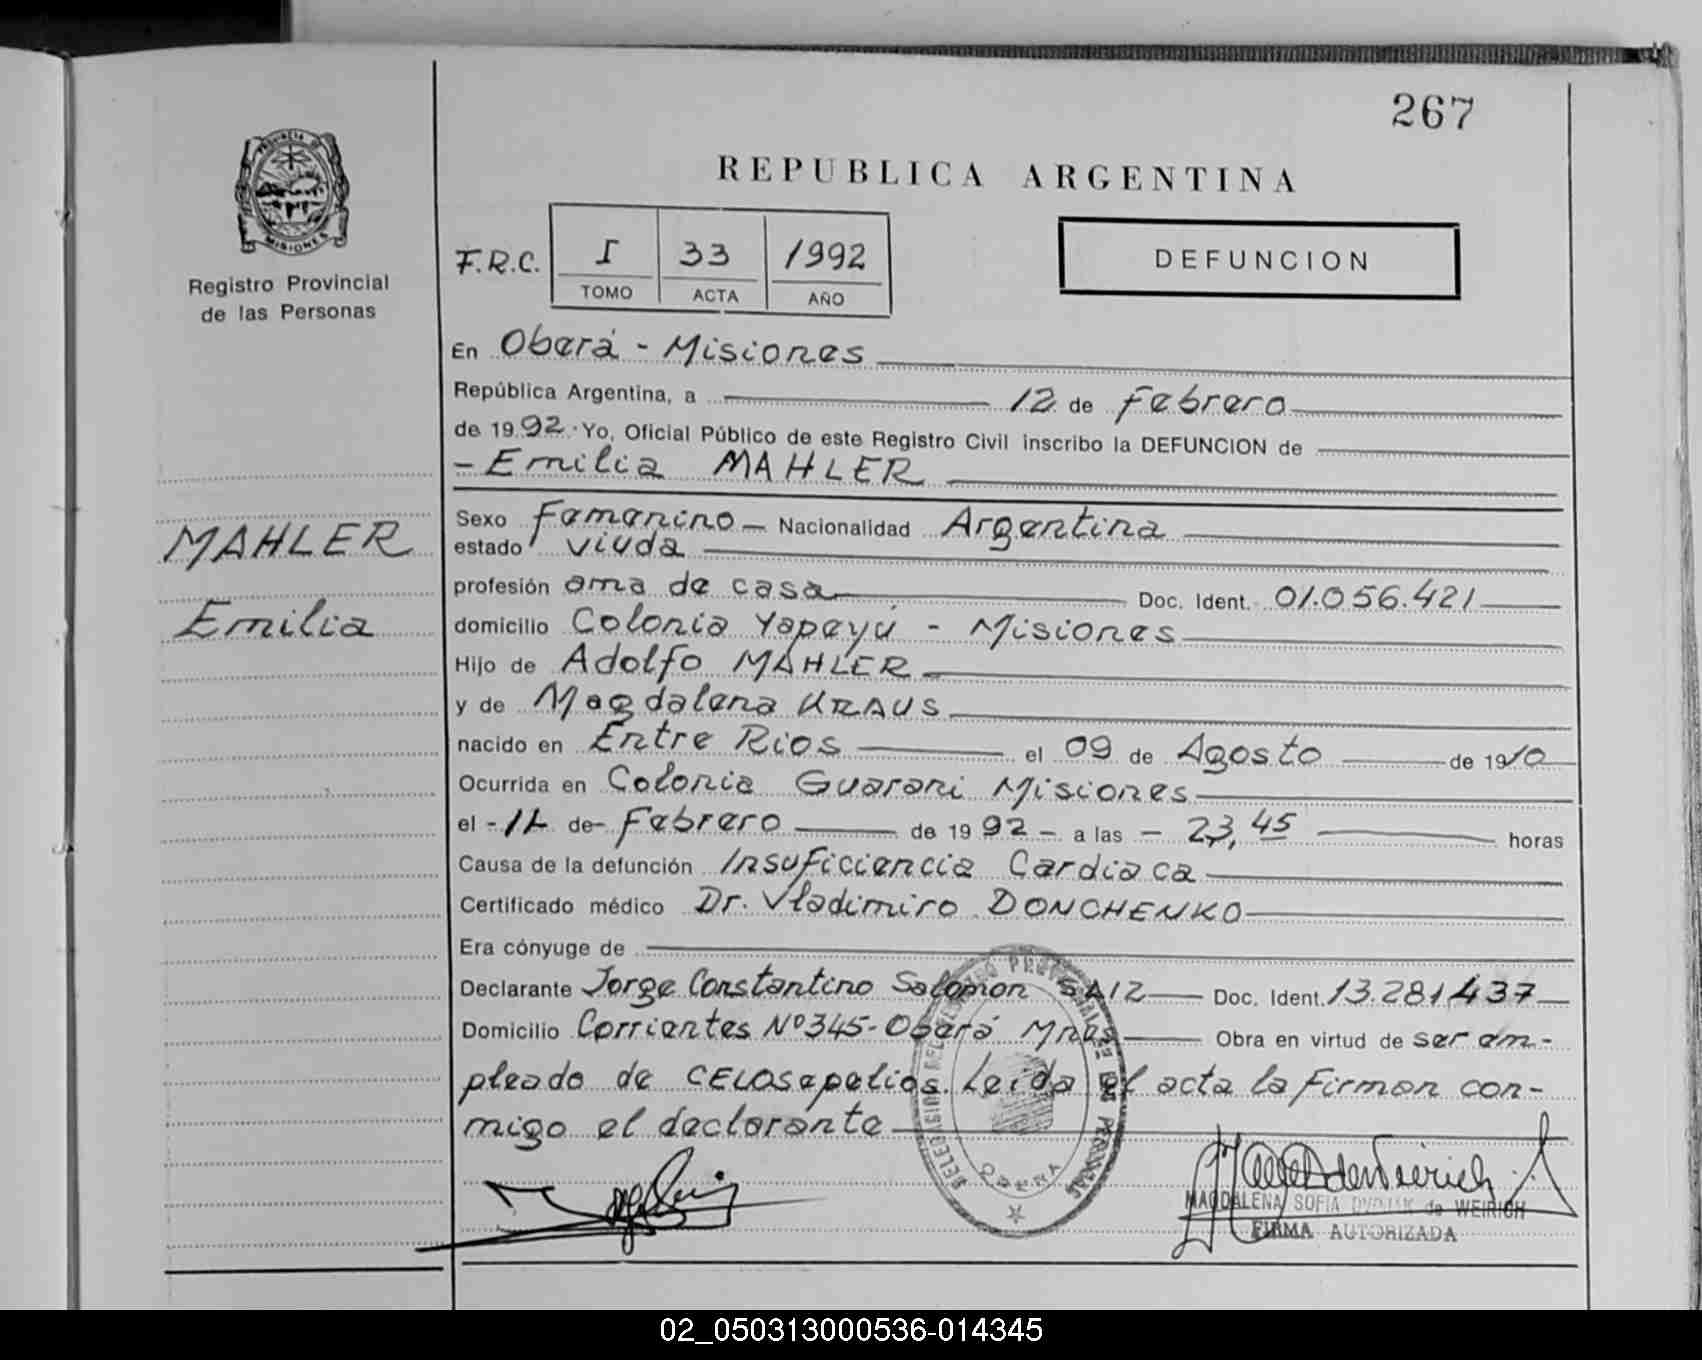 267
REPUBLICA ARGENTINA
PROVINCIA DE
MISIONES
Registro Provincial
de las Personas
F.R.C.
I 33 1992
TOMO ACTA AÑO
DEFUNCION
En Oberá - Misiones
República Argentina, a 12 de Febrero
de 1992 Yo, Oficial Público de este Registro Civil inscribo la DEFUNCION de
- Emilia MAHLER
MAHLER
Emilia
Sexo Femenino - Nacionalidad Argentina
estado viuda
profesión ama de casa Doc. Ident. 01.056.421
domicilio Colonia Yapeyú - Misiones
Hijo de Adolfo MAHLER
y de Magdalena KRAUS
nacido en Entre Rios el 09 de Agosto de 1910
Ocurrida en Colonia Guarani Misiones
el - 11 de - Febrero de 1992 - a las - 23,45 horas
Causa de la defunción Insuficiencia Cardiaca
Certificado médico Dr. Vladimiro DONCHENKO
Era cónyuge de
Declarante Jorge Constantino Salomon SAIZ Doc. Ident. 13.281.437
Domicilio Corrientes Nº 345 - Oberá Mnes Obra en virtud de ser em-
pleado de CELOSepelios. Leida el acta la Firman con-
migo el declarante
OBERA
MAGDALENA SOFIA de WEIRICH
FIRMA AUTORIZADA
02_050313000536-014345